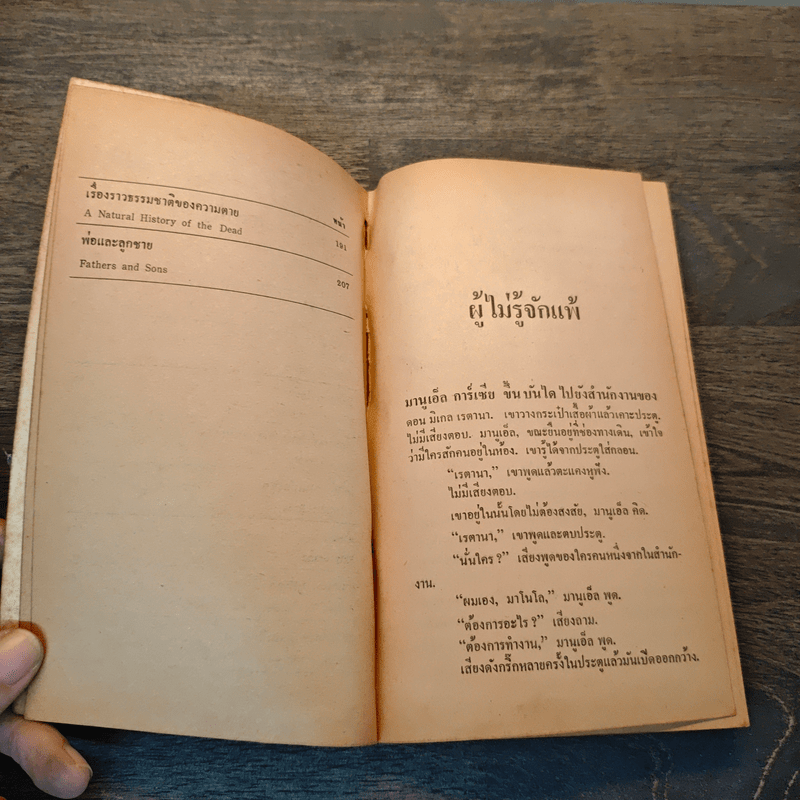 หน้า
เรื่องราวธรรมชาติของความตาย
A Natural History of the Dead 191
พ่อและลูกชาย
Fathers and Sons 207
ผู้ไม่รู้จักแพ้
มานูเอ็ล การ์เซีย ขึ้นบันไดไปยังสำนักงานของ
ดอน มิเกล เรตานา. เขาวางกระเป๋าเสื้อผ้าแล้วเคาะประตู.
ไม่มีเสียงตอบ. มานูเอ็ล, ขณะยืนอยู่ที่ช่องทางเดิน, เข้าใจ
ว่ามีใครสักคนอยู่ในห้อง. เขารู้ได้จากประตูใส่กลอน.
“เรตานา,” เขาพูดแล้วตะแคงหูฟัง.
ไม่มีเสียงตอบ.
เขาอยู่ในนั้นโดยไม่ต้องสงสัย, มานูเอ็ล คิด.
“เรตานา,” เขาพูดและตบประตู.
“นั่นใคร?” เสียงพูดของใครคนหนึ่งจากในสำนัก-
งาน.
“ผมเอง, มาโนโล,” มานูเอ็ล พูด.
“ต้องการอะไร?” เสียงถาม.
“ต้องการทำงาน,” มานูเอ็ล พูด.
เสียงดังกริ๊กหลายครั้งในประตูแล้วมันเปิดออกกว้าง.